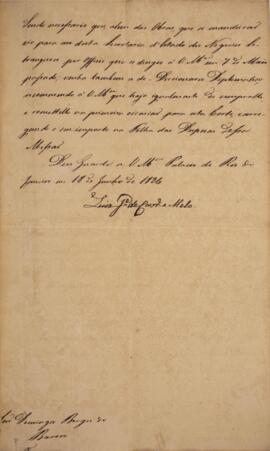 Sendo necessario que alem das Obras que se mandarão
vir para esta Secretaria d'Estado dos Negocios Es-
trangeiros por Officio que se dirigio a V. M.ce em 7 de Maio
passado, venha tambem o de Diplomatico
recommendo a V. M.ce que haja igualmente de comprallo
e remettello na primeira occasião para esta Corte, carre-
gando o seu importe na Folha das Despezas dessa
Missão
Deos Guarde a V. M.ce Palacio do Rio de
Janeiro em 18 de Junho de 1824
Luiz Jé de Carv.o e Mello
Snr Domingos Borges de
Barros